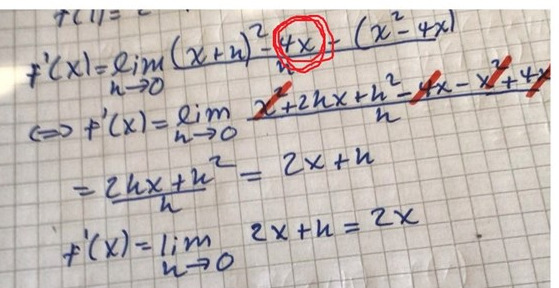 f'(x)=lim h→0 ((x+h)²-4x-(x²-4x))/h
⇔ f'(x)=lim h→0 (x²+2hx+h²-4x-x²+4x)/h
= (2hx+h²)/h = 2x+h
f'(x)=lim h→0 2x+h=2x